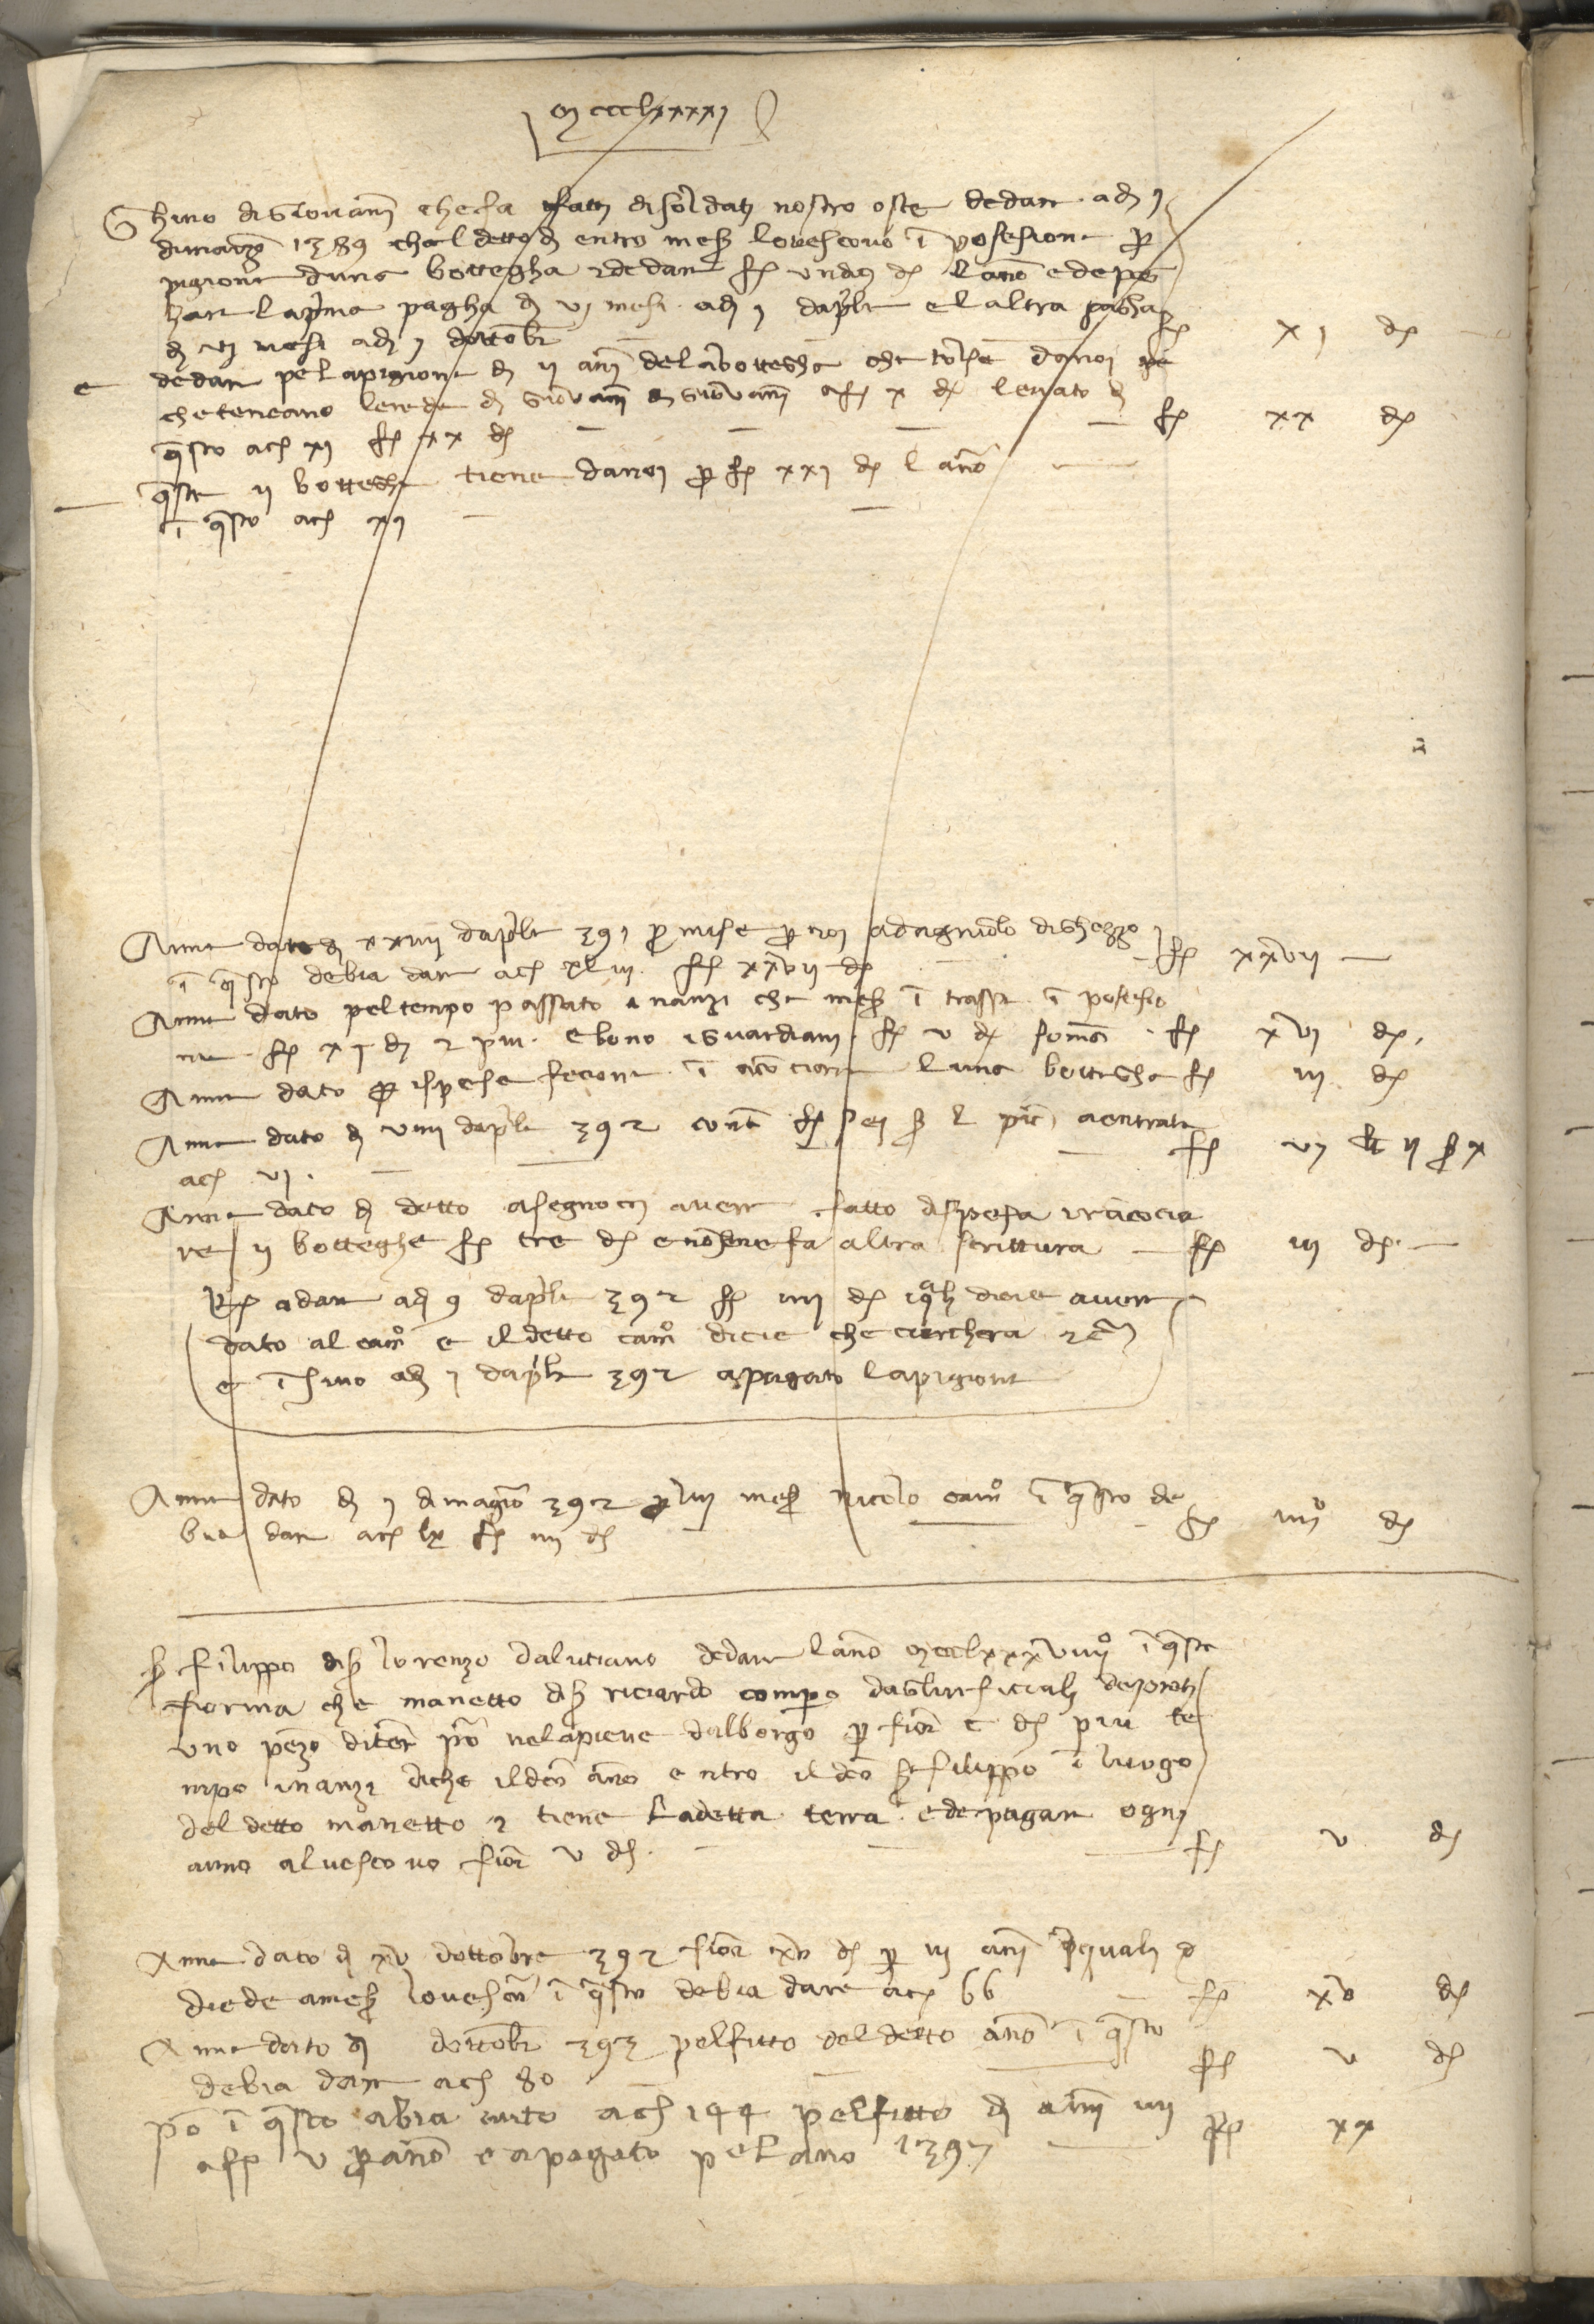 mccclxxxxj
Ghino di Giovanni che fa fatti di soldati nostro oste de dare adj j
di março 1389 che l detto dj entro mess lovescovo ī posesione p
pigione duna bottegha 2 de dare f undici d l ano e de pa
ghare la prima pagha dj vj mesi adj j daprile e l altra pagha
dj vj mesi adj j dottobre f xj d
e de dare pe la pigione dj ij anni de la bottegha che tolse da noi
che teneano lerede dj Giovanni dj Giovanni a f x d levato dj
questo ac xj f xx d f xx d
queste ij botteghe tiene da noi p f xxj d l ano
ī questo ac xj
Anne dato dj xxiiij daprile 391 p mise p noi ad agniolo di Ghezzo
ī questo debia dare ac xliij f xxvij d f xxvij
Anne dato pel tempo passato inanzi che mess ī trasse ī posesio
ne f xj d 2 piu e bono i guardiani f v d soma f xvj d
Anne dato p ispese fecione ī aconciare l una bottegha f iij d
Anne dato dj viiij daprile 392 cont f sei s l pic a entrata
ac vj f vj lb ij s x
Anne dato dj detto asegnoci avere fatto di spesa i racocia
re ij botteghe f tre d e no se ne fa altra scrittura f iij d
R a dare adj 9 daprile 392 f iiij d i quali dicie avere
dato al camo e il detto camo dicie che cierchera
e ī sino adj j daprile 392 a pagato la pigione
Anne dato dj j di magio 392 p lui mess nicolo camo ī questo de
bia dare ac lx f iiij d f iiijo d
s filippo di s lorenzo da lutiano de dare l ano mccclxxxviiijo ī questa
forma che manetto di s riciardo compero dagli uficiali
uno pezo di terra posto ne la pieve dal borgo p fior c d piu te
mpo inanzi di che il detto ano entro il detto s filippo ī luogo
del detto manetto 2 tiene la detta terra e de pagare ogni
anno al vescovo fior v d f v d
Anne dato dj xv dottobre 392 fior xv d p iij ani i quali
diede a mess lo vescovo ī questo debia dare ac 66 f xv d
Anne dato dj dottobre 393 pel fitto del detto ano ī questo
debia dare ac 80 f v d
posto ī questo abia auto ac 144 pel fitto dj anni iiij
a f v p ano e a pagato pe l ano 1397 f xx